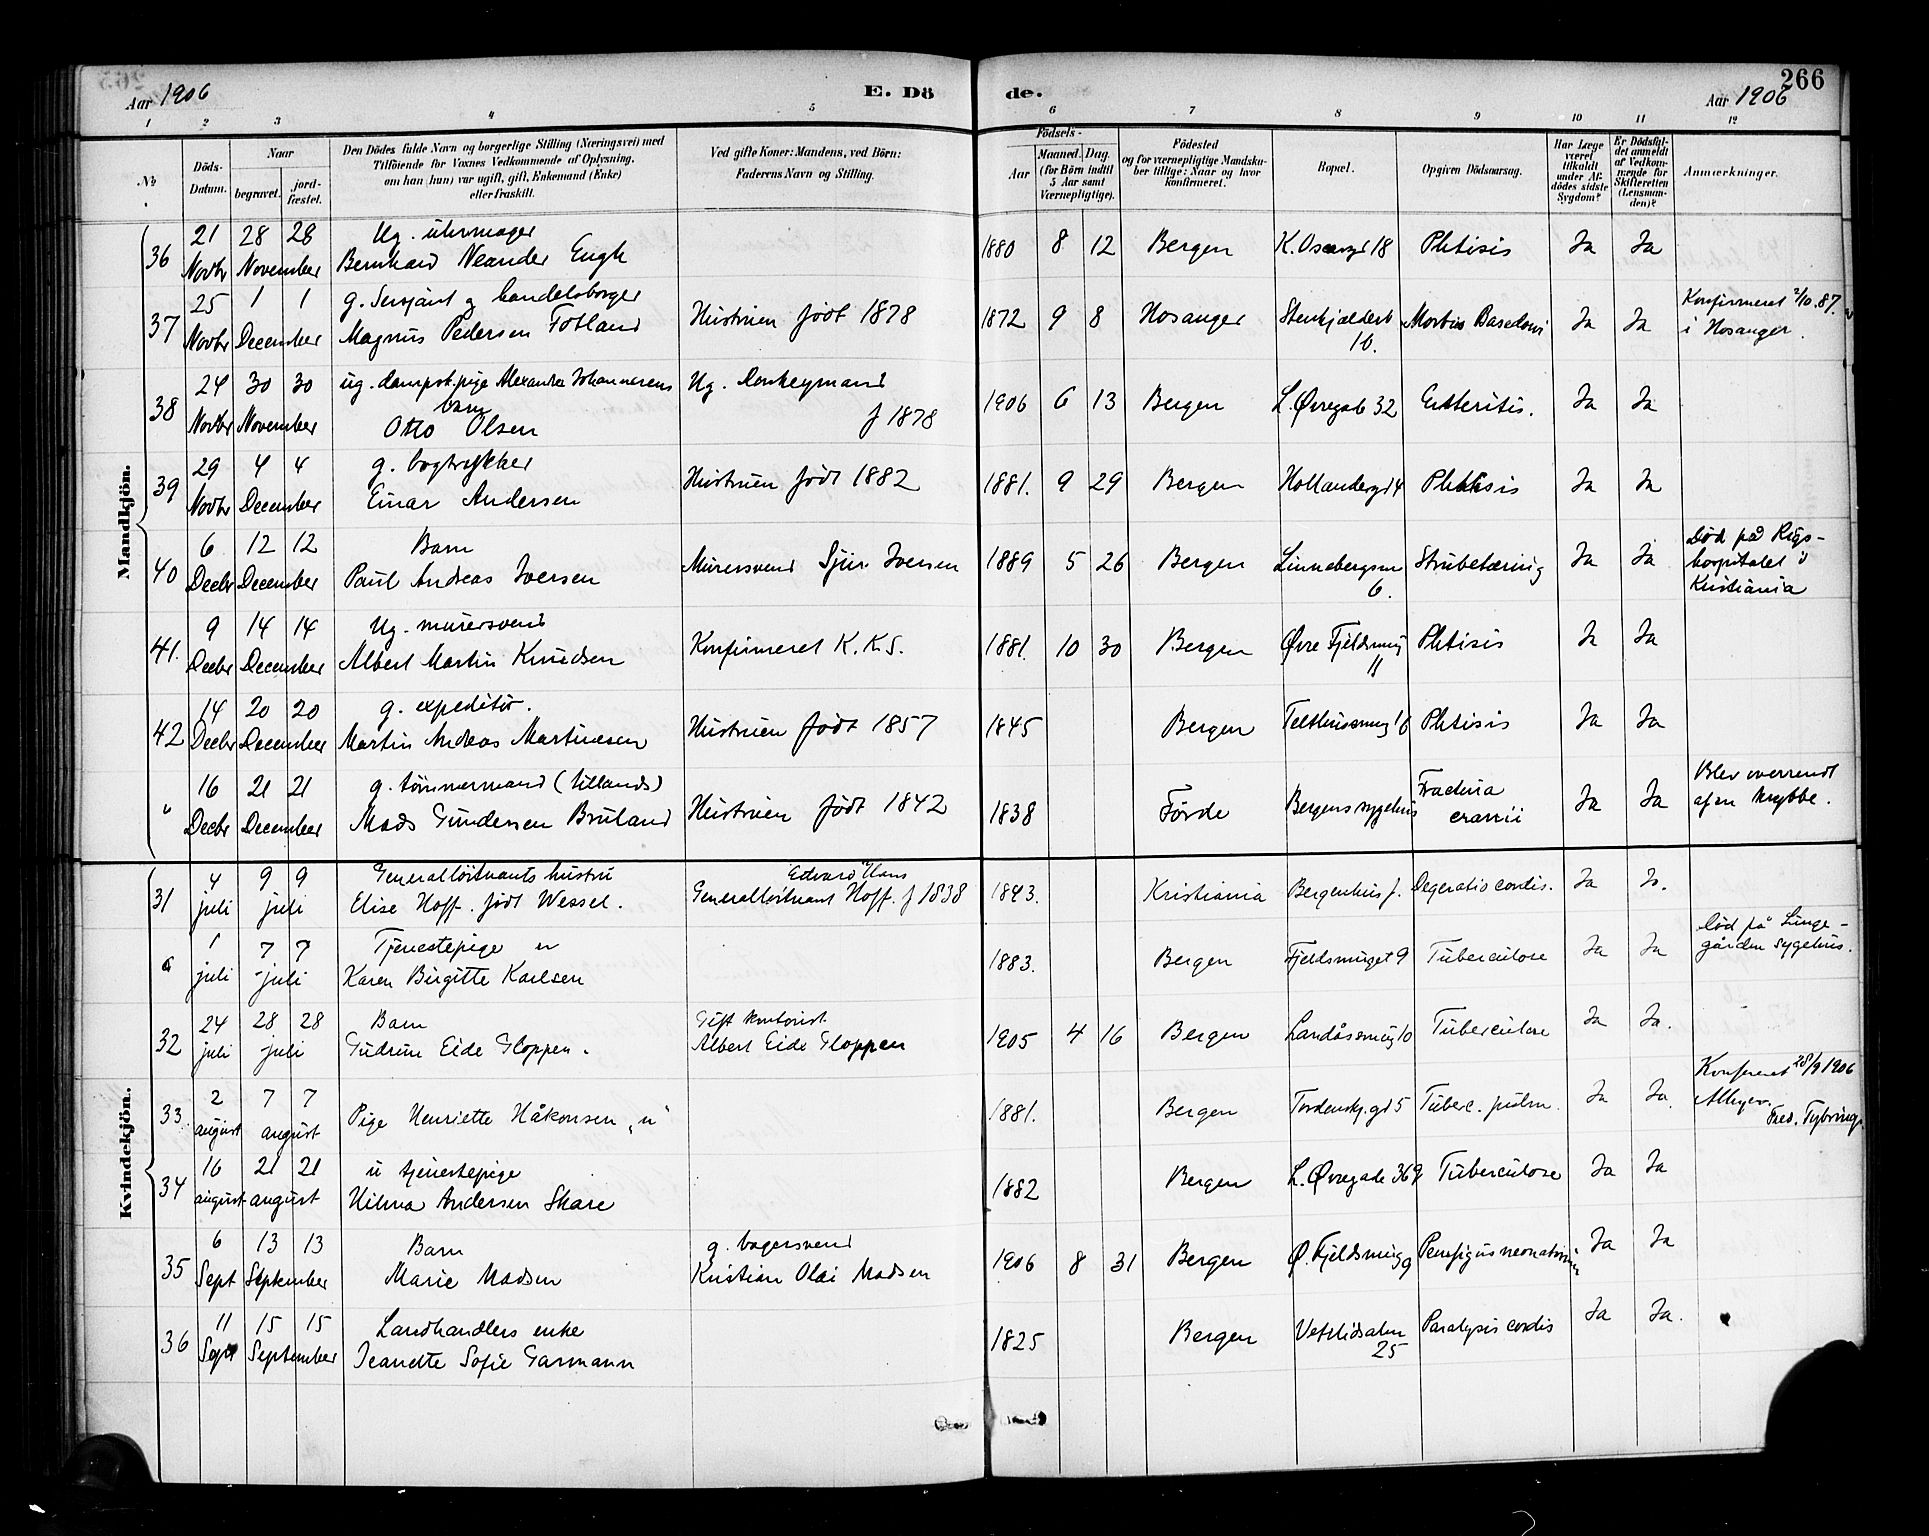 Aar 1906 E. Dö de. 266
Aar 1906
1 2 3 4 5 6 7 8 9 10 11 12
№
Döds-Datum.
Naar
begravet.
jord-fæstet.
Den Dödes fulde Navn og borgerlige Stilling (Næringsvei) med
Tilföiende for Voxnes Vedkommende af Oplysning,
om han (hun) var ugift, gift, Enkemand (Enke)
eller fraskilt.
Ved gifte Koner: Mandens, ved Börn:
Faderens Navn og Stilling.
Födsels-
Aar
Maaned. Dag.
(for Börn indtil
5 Aar samt
Værnepligtige).
Födested
og for værnepligtige Mandsku-
ber tillige: Naar og hvor
konfirmeret.
Bopæl.
Opgiven Dödsaarsag.
Har Læge
været
tilkaldt
under Af-
dödes sidste
Sygdom?
Er Dödsfal-
det anmeldt
af Vedkom-
mende for
Skifteretten
(Lensman-
den)?
Anmærkninger.
Mandkjön.
21 28 28 Ug. uhrmager
36 Novbr November Bernhard Neander Engh 1880 8 12 Bergen K. Oscarsgd 18 Phtisis Ja Ja
25 1 1 g. Sersjant og handelsborger
37 Novbr December Magnus Pedersen Fotland Hustruen født 1878 1872 9 8 Hosanger Stenkjælderb 10. Morbus Basedowi Ja Ja Konfirmeret 2/10.87. i Hosanger.
24 30 30 ug. dampsk.pige Alexandra Johannesens barn Ug. Donkeymand
38 Novbr November Otto Olsen f 1878 1906 6 13 Bergen L. Øvregade 32 Enteritis. Ja Ja
29 4 4 g. bogtrykker
39 Novbr December Einar Andersen Hustruen født 1882 1881. 9 29 Bergen Hollendergd 4 Phtisis Ja Ja
6 12 12 Barn
40 Decbr December Paul Andreas Iversen Murersvend Sjur Iversen 1889 5 26 Bergen Linnebergsm 6. Strubetæring Ja Ja Død på Rigs-
hospitalet i
Kristiania
9 14 14 Ug. murersvend
41. Decbr December Albert Martin Knudsen Konfirmeret K. K. S. 1881. 10 30 Bergen Øvre Fjeldsmug 11 Phtisis Ja Ja
14 20 20 g. expeditør.
42 Decbr December Martin Andreas Martinesen Hustruen født 1857 1845 Bergen Telthussmug 16 Phtisis Ja Ja
16 21 21 g. tømmermand (Utlands)
" Decbr December Mads Gundersen Bruland Hustruen født 1842 1838 Førde Bergens sygehus Fractura cranii Ja Ja Blev overrendt
af en krybbe.
Kvindekjön.
4 9 9 Generalløitnants hustru Edvard Hans
31 juli juli Elise Hoff. født Wessel. Generalløitnant Hoff. f 1838 1843. Kristiania Bergenhus f. Degeratio cordis. Ja Ja.
1 7 7 Tjenestepige u
" juli juli Karen Birgitte Karlsen 1883. Bergen Fjeldsmuget 9 Tuberculose Ja Ja Død på Lunge-
gården sygehus.
24 28 28 Barn Gift kontorist
32 juli juli Gudrun Eide Gloppen. Albert Eide Gloppen 1905 4 16 Bergen Landåssmug 10 Tuberculose Ja Ja.
2 7 7
33 august august Pige Henriette Håkonsen "u" 1881. Bergen Tordenskj.gd 5 Tuberc. pulm. Ja Ja. Konfereret 28/9 1906
Fred. Tybring.
16 21 21 u tjenestepige
34 august august Hilma Andersen Skare 1882 Bergen L. Øvregade 36 Tuberculose Ja Ja
6 13 13 Barn g. bagersvend
35 Sept September Marie Madsen Kristian Olai Madsen 1906 8 31 Bergen Ø. Fjeldsmug 9 Pemfigus neonatorum Ja Ja
11 15 15 Landhandlers enke
36 Sept September Jeanette Sofie Garmann 1825 Bergen Vetrlidsalm 25 Paralysis cordis Ja Ja.